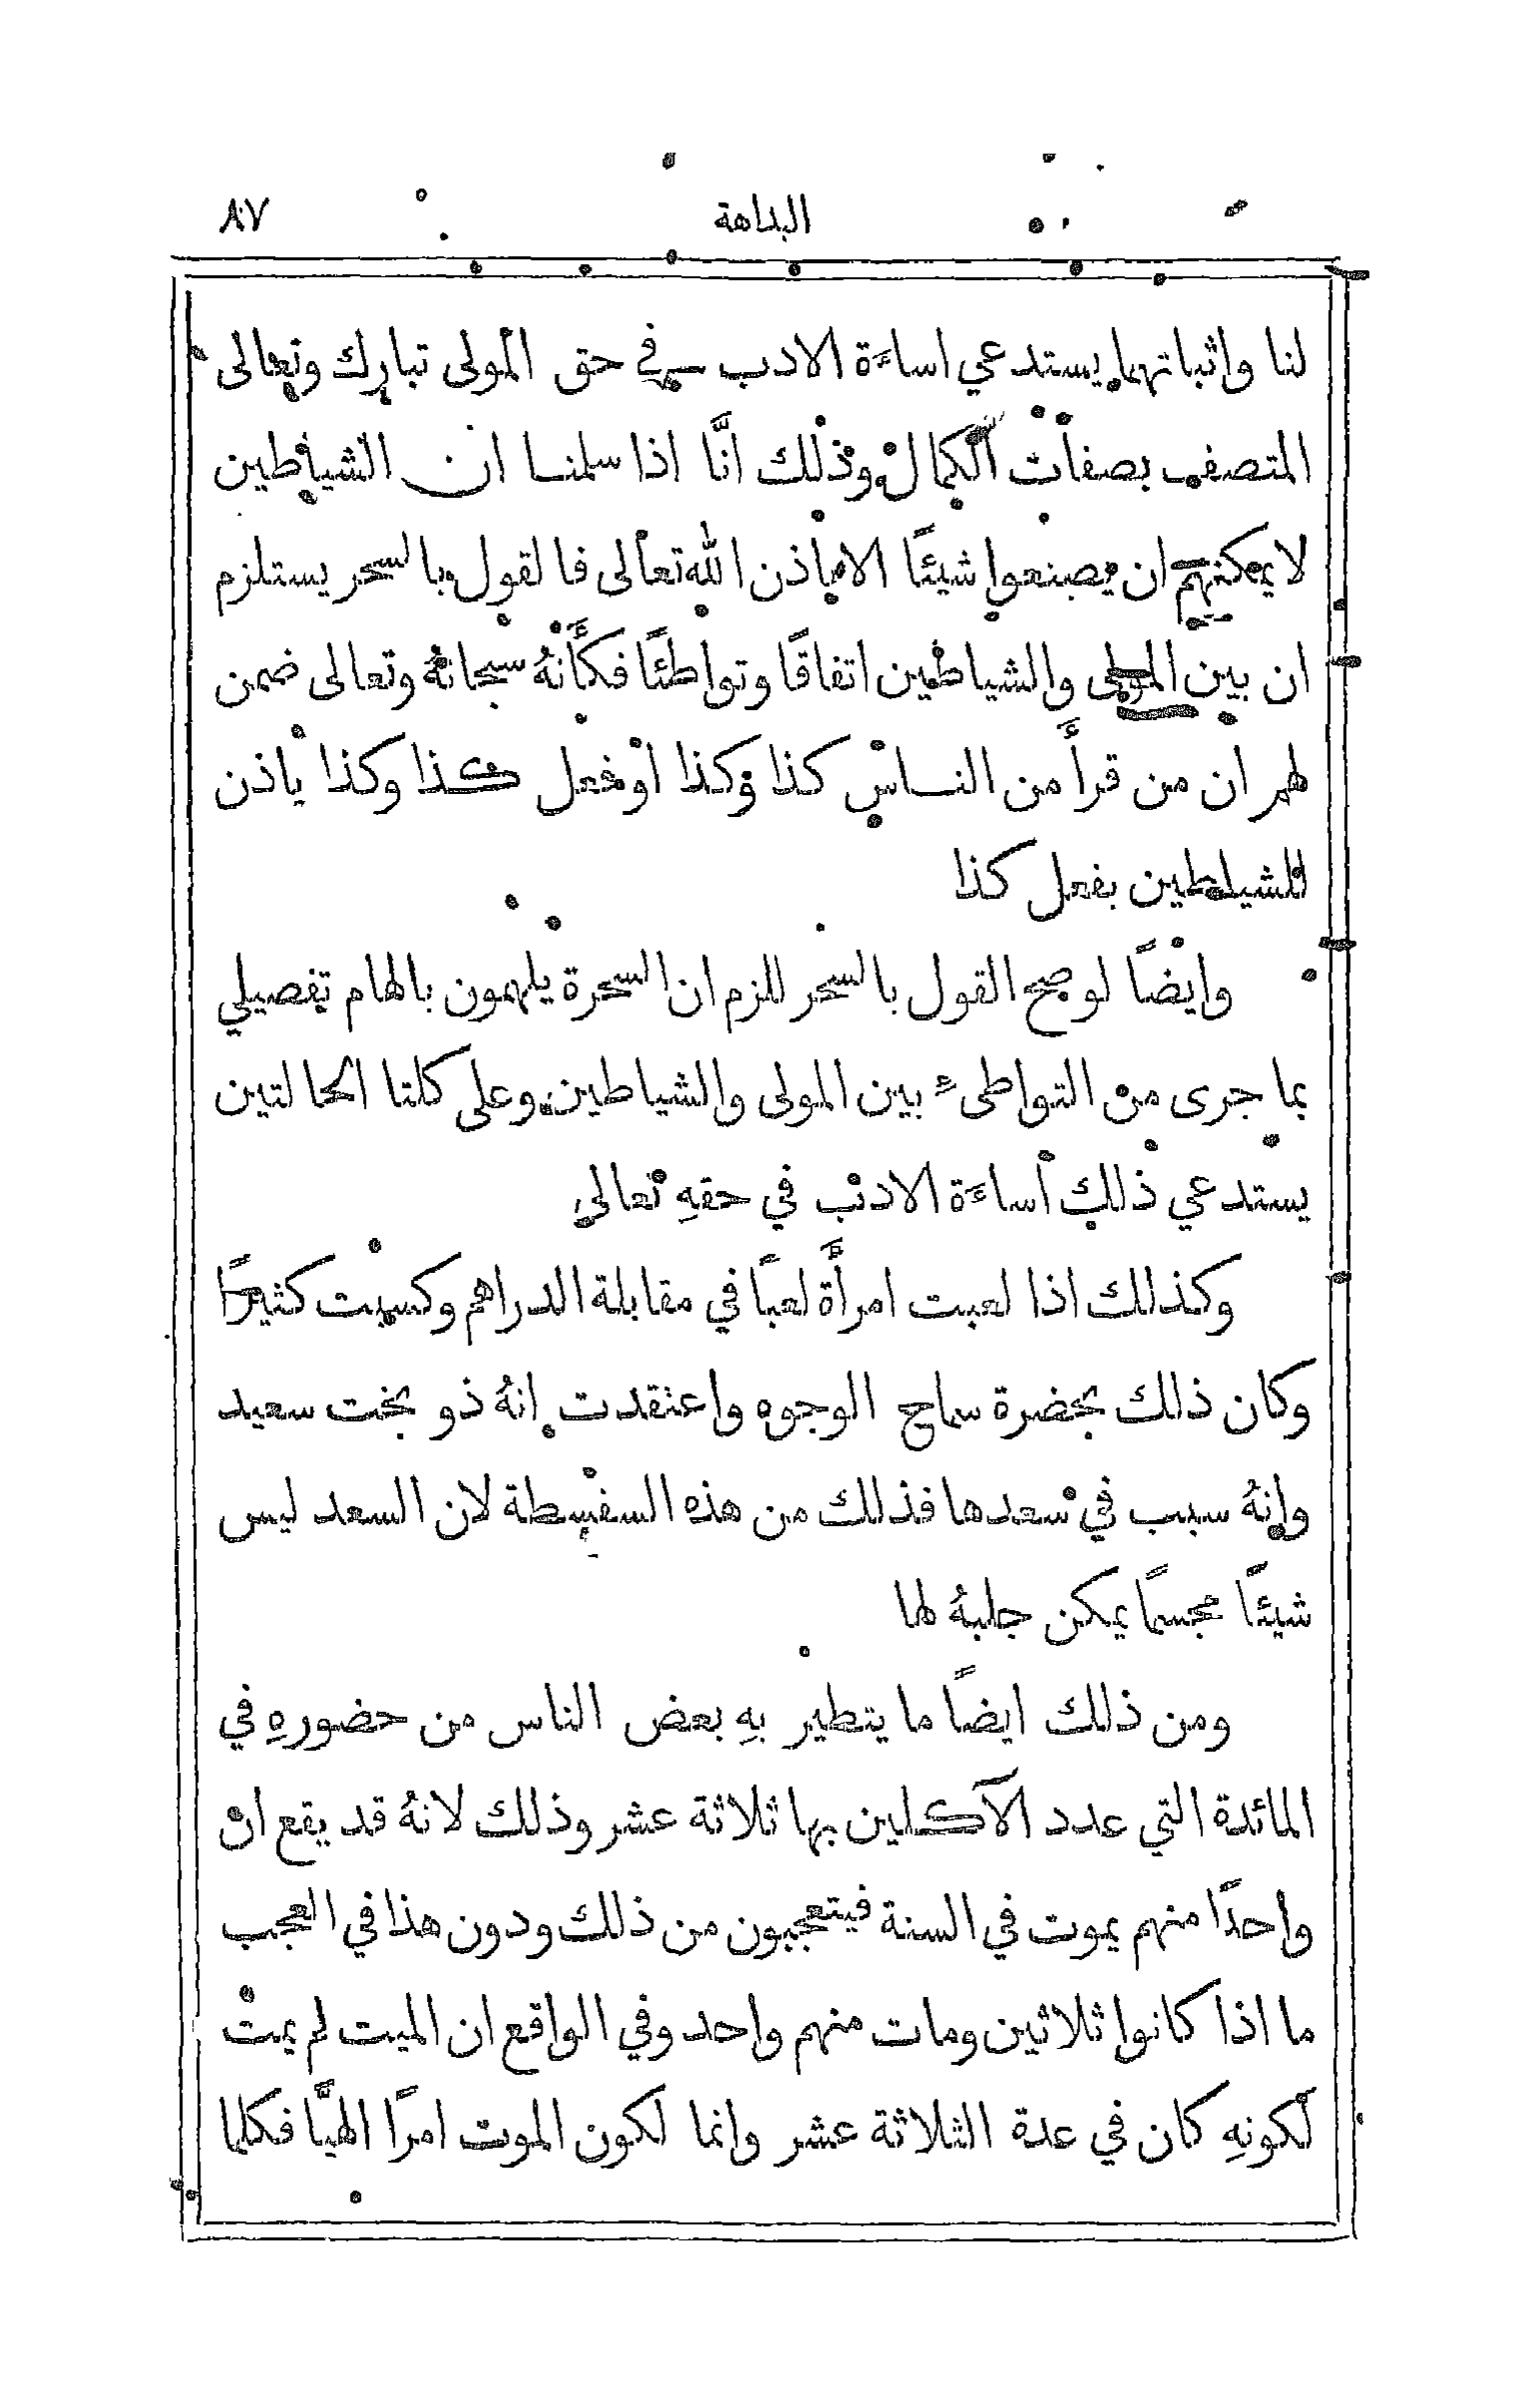 البداهة ٨٧
لنا واثباتهما يستدعي اساءَة الادب في حق المولى تبارك وتعالى
المتصف بصفات الكمال وذلك انَّا اذا سلمنا ان الشياطين
لا يمكنهم ان يصنعوا شيئًا الا باذن الله تعالى فالقول بالسحر يستلزم
ان بين المولى والشياطين اتفاقًا وتواطئًا فكأنهُ سبحانهُ وتعالى ضمن
لهم ان من قرأَ من الناس كذا وكذا او فعل كذا وكذا ياذن
للشياطين بفعل كذا
وايضًا لو صح القول بالسحر للزم ان السحرة يلهمون بالهام تفصيلي
بما جرى من التواطىء بين المولى والشياطين وعلى كلتا الحالتين
يستدعي ذلك اساءَة الادب في حقهِ تعالى
وكذلك اذا لعبت امرأَة لعبًا في مقابلة الدراهم وكسبت كثيرًا
وكان ذلك بحضرة سماح الوجوه واعتقدت انهُ ذو بخت سعيد
وانهُ سبب في سعدها فذلك من هذه السفسطة لان السعد ليس
شيئًا مجسمًا يمكن جلبهُ لها
ومن ذلك ايضًا ما يتطير بهِ بعض الناس من حضورهِ في
المائدة التي عدد الآكلين بها ثلاثة عشر وذلك لانهُ قد يقع ان
واحدًا منهم يموت في السنة فيتعجبون من ذلك ودون هذا في العجب
ما اذا كانوا ثلاثين ومات منهم واحد وفي الواقع ان الميت لم يمت
لكونهِ كان في عدة الثلاثة عشر وانما لكون الموت امرًا الهيًّا فكلما